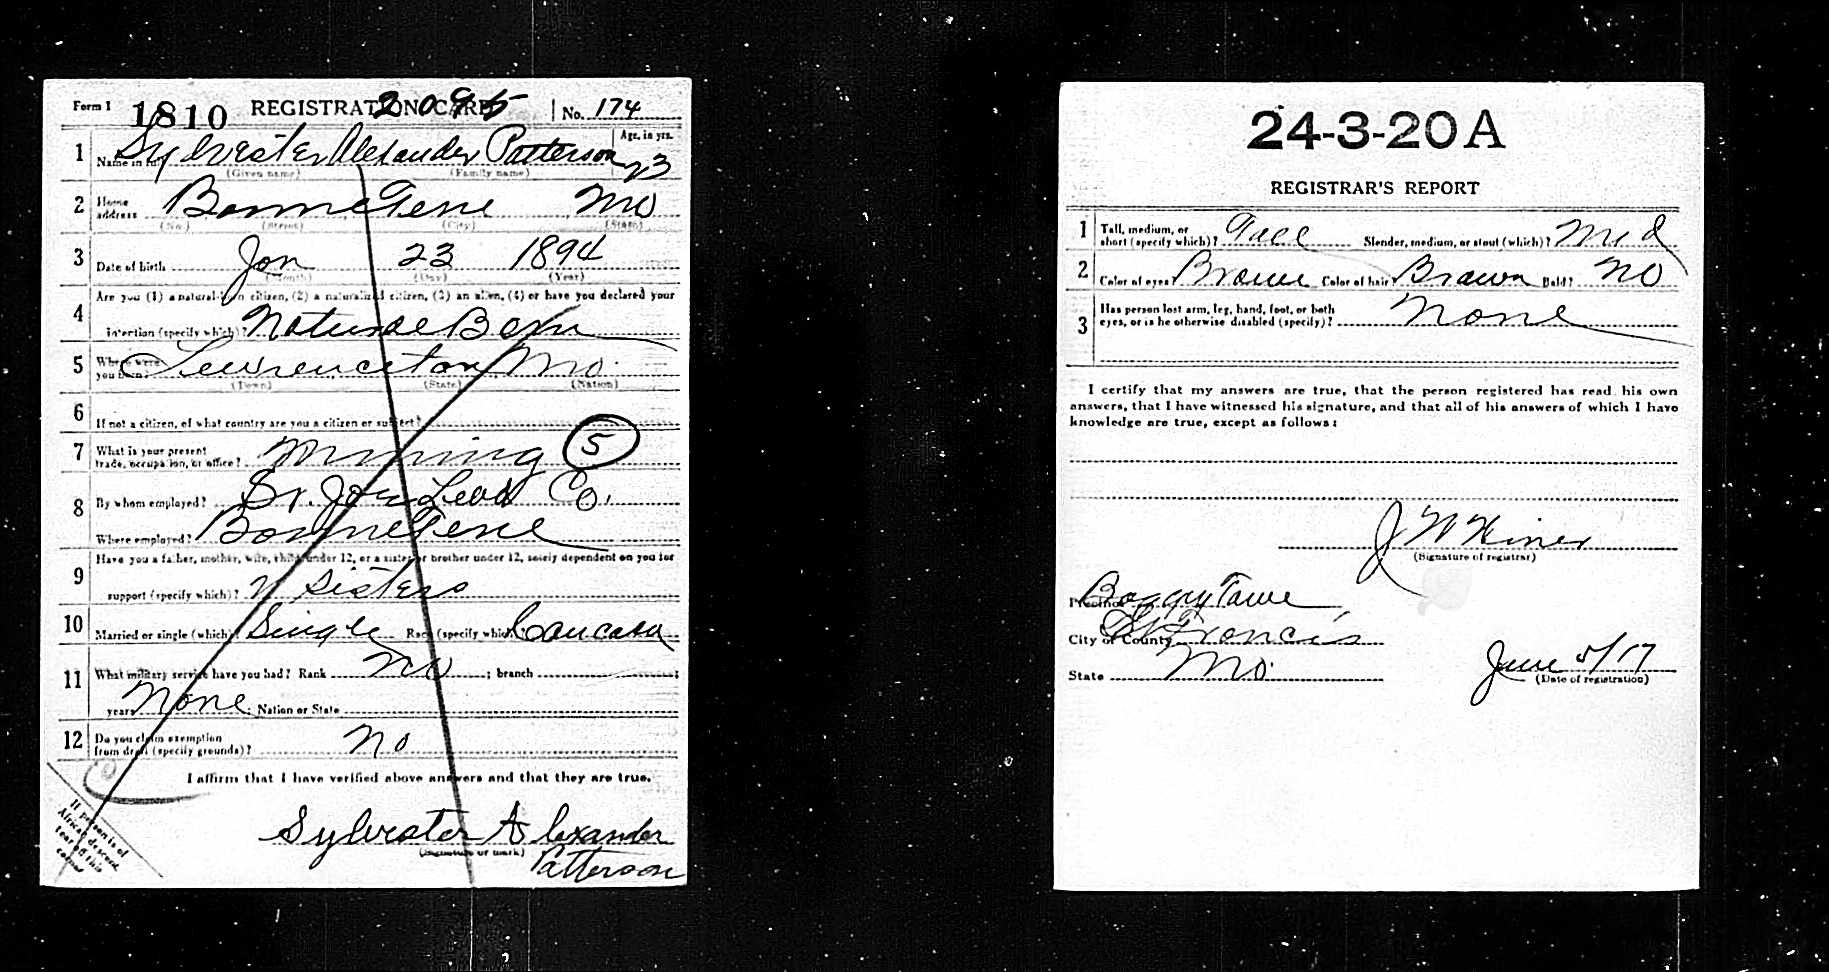 Form 1 1810 REGISTRATION CARD 2095 No. 174
1 Name in full Sylvester Alexander Patterson Age, in yrs. 23
(Given name) (Family name)
2 Home address BonneTerre Mo
(No.) (Street) (City) (State)
3 Date of birth Jan 23 1894
(Month) (Day) (Year)
Are you (1) a natural-born citizen, (2) a naturalized citizen, (3) an alien, (4) or have you declared your
4 intention (specify which)? Natural Born
5 Where were you born? Lawrenceton, Mo.
(Town) (State) (Nation)
6 If not a citizen, of what country are you a citizen or subject?
7 What is your present trade, occupation, or office? Mining 5
8 By whom employed? St. Joe Lead Co.
Where employed? BonneTerre
Have you a father, mother, wife, child under 12, or a sister or brother under 12, solely dependent on you for
9 support (specify which)? sisters
10 Married or single (which)? Single Race (specify which)? Caucasn
11 What military service have you had? Rank No ; branch ;
years None ; Nation or State
12 Do you claim exemption from draft (specify grounds)? No
I affirm that I have verified above answers and that they are true.
Sylvester Alexander
(Signature or mark) Patterson
If person is of
African descent,
tear off this
corner
24-3-20 A
REGISTRAR'S REPORT
1 Tall, medium, or short (specify which)? Tall Slender, medium, or stout (which)? Med
2 Color of eyes? Brown Color of hair? Brown Bald? No
3 Has person lost arm, leg, hand, foot, or both eyes, or is he otherwise disabled (specify)? None
I certify that my answers are true, that the person registered has read his own
answers, that I have witnessed his signature, and that all of his answers of which I have
knowledge are true, except as follows:
J W Kiner
(Signature of registrar)
Precinct Boggy Town
City or County St Francis
State Mo. June 5/17
(Date of registration)